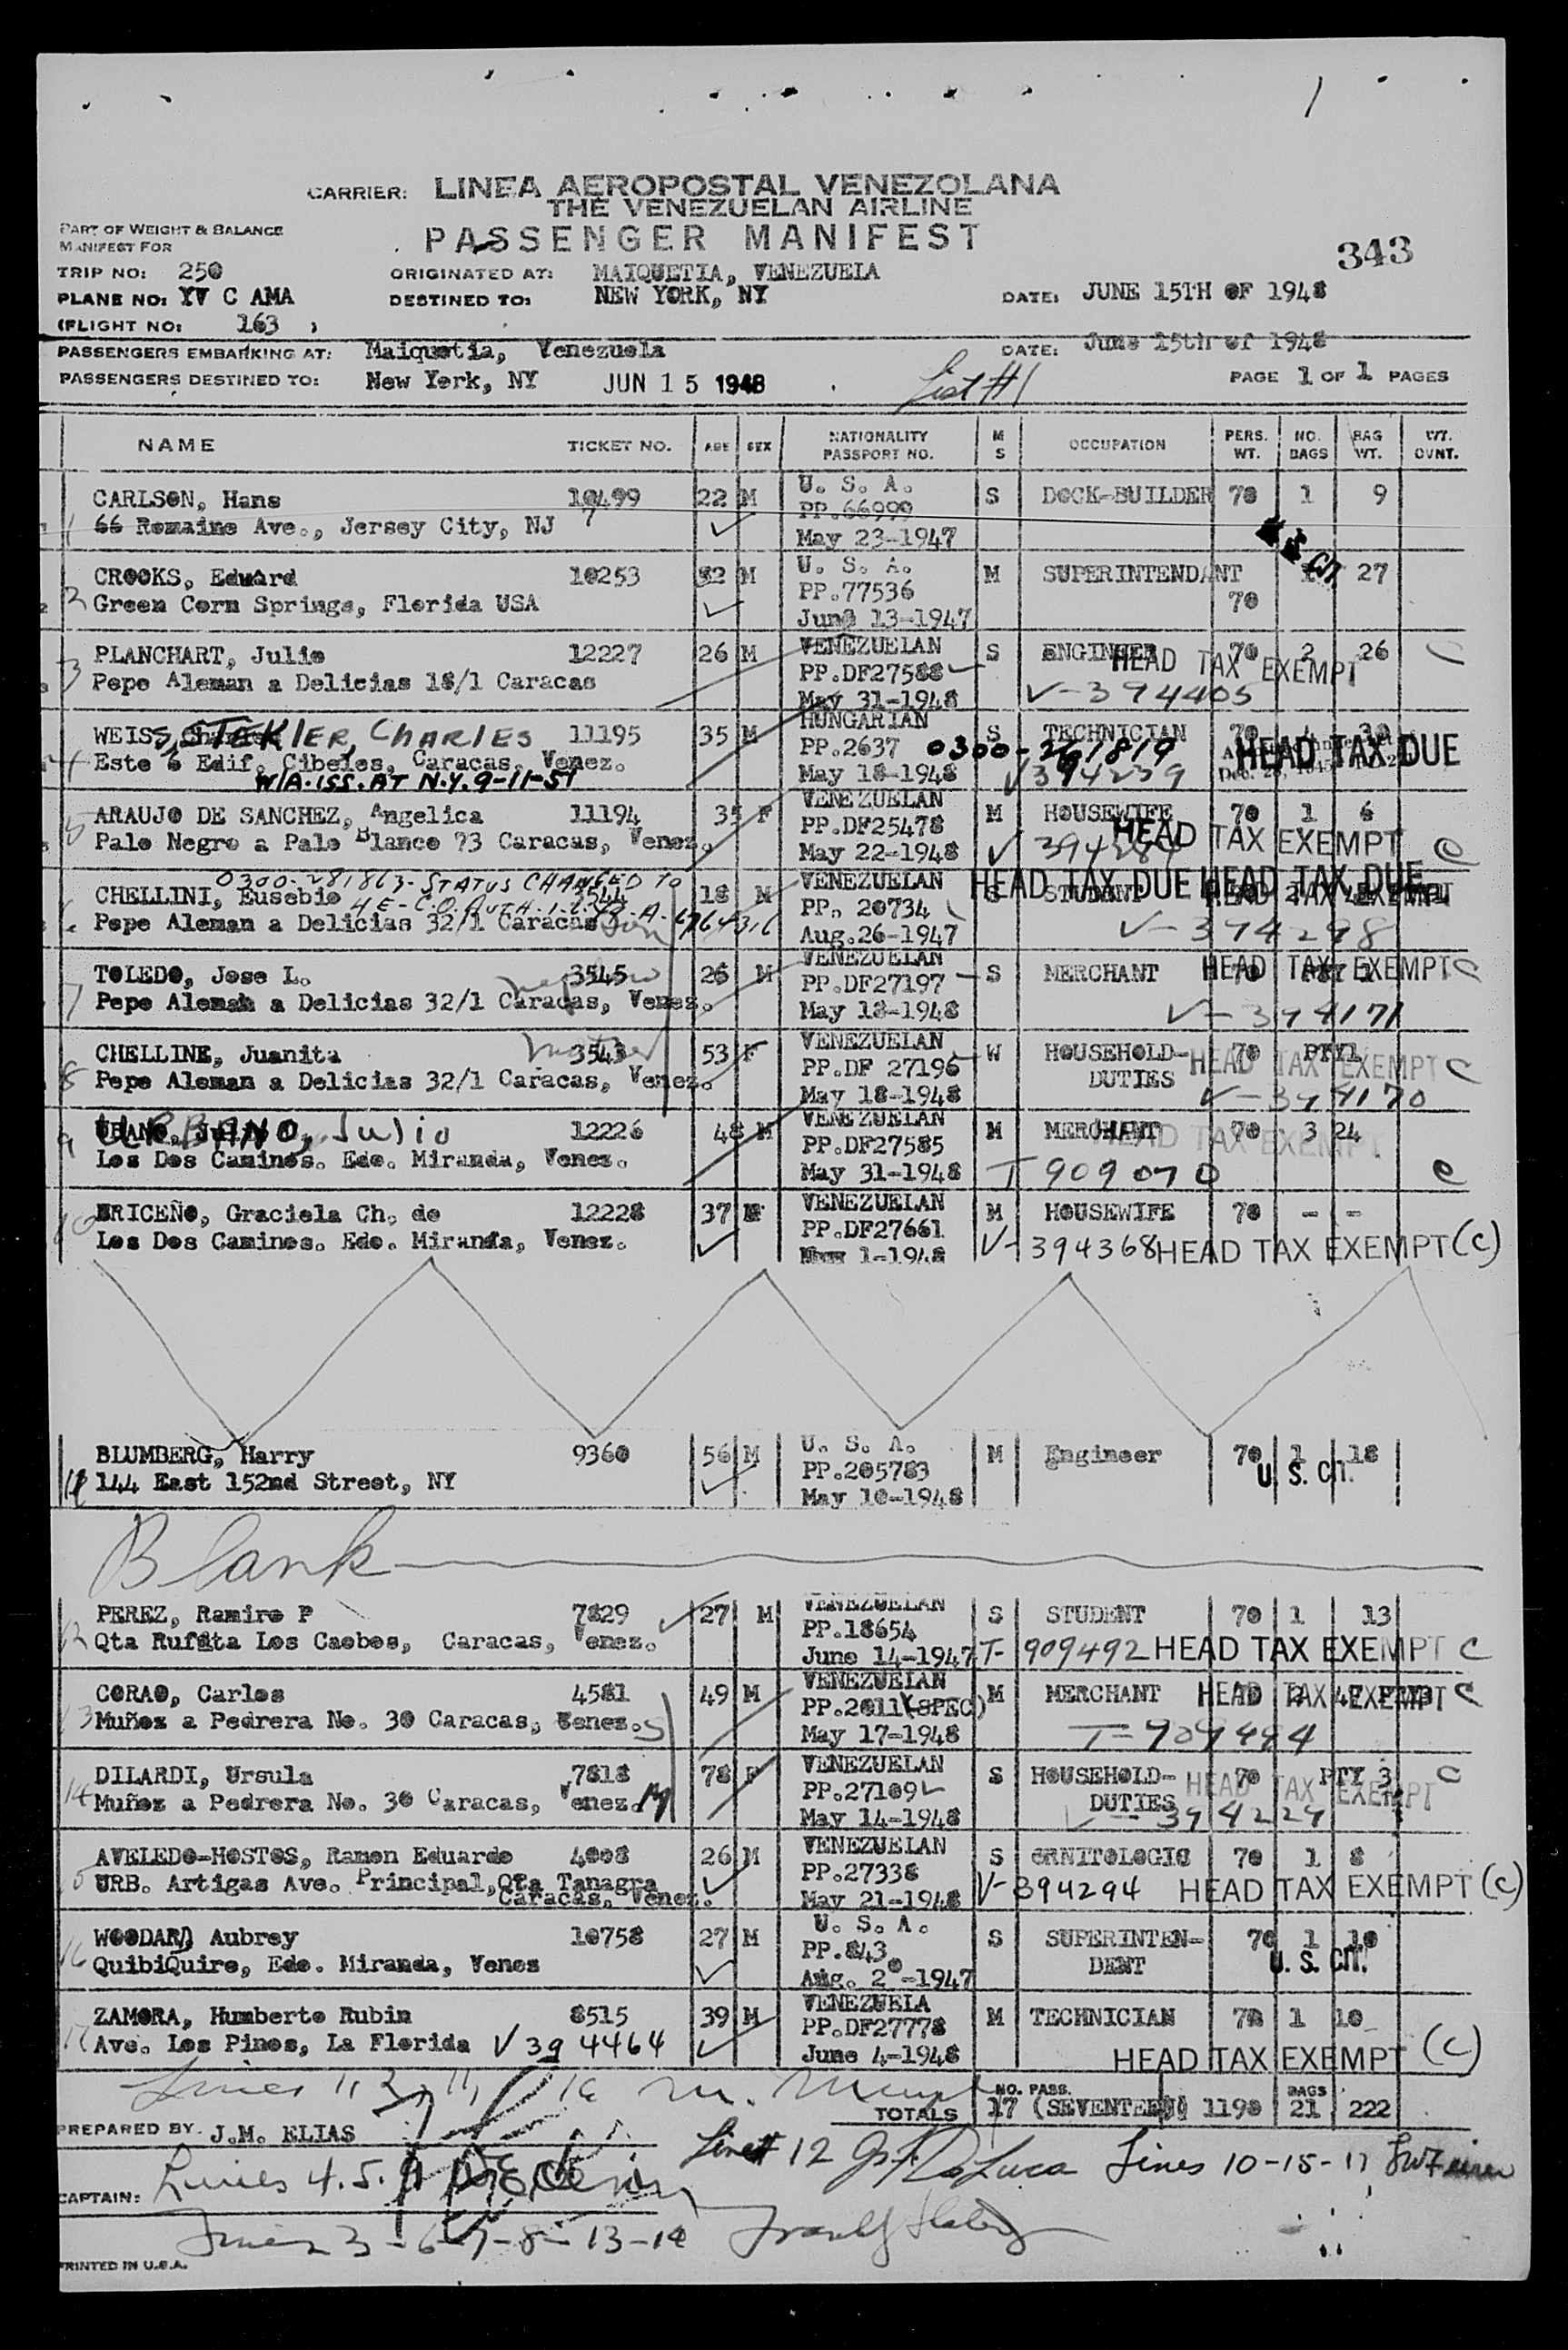 CARRIER: LINEA AEROPOSTAL VENEZOLANA
THE VENEZUELAN AIRLINE
PART OF WEIGHT & BALANCE
MANIFEST FOR
PASSENGER MANIFEST
343
TRIP NO: 250 ORIGINATED AT: MAIQUETIA, VENEZUELA
PLANE NO: YV C AMA DESTINED TO: NEW YORK, NY DATE: JUNE 15TH OF 1948
(FLIGHT NO: 163 )
PASSENGERS EMBARKING AT: Maiquetia, Venezuela DATE: June 15th of 1948
PASSENGERS DESTINED TO: New York, NY JUN 15 1948 List #1 PAGE 1 OF 1 PAGES
NAME TICKET NO. AGE SEX NATIONALITY PASSPORT NO. M S OCCUPATION PERS. WT. NO. BAGS BAG WT. WT. OVNT.
CARLSON, Hans 10499 22 M U. S. A. S DOCK-BUILDER 70 1 9
1 66 Romaine Ave., Jersey City, NJ PP.66999
May 23-1947
U.S. CIT.
CROOKS, Eduard 10253 52 M U. S. A. M SUPERINTENDANT 27
2 Green Corn Springs, Florida USA PP.77536 70
June 13-1947
PLANCHART, Julio 12227 26 M VENEZUELAN S ENGINEER 70 2 26
3 Pepe Aleman a Delicias 18/1 Caracas PP.DF27588 HEAD TAX EXEMPT
May 31-1948 V-394405
WEISS, STEKLER, CHARLES 11195 35 M HUNGARIAN S TECHNICIAN 70 4 30
4 Este 6 Edif. Cibeles, Caracas, Venez. PP.2637 0300-261819 HEAD TAX DUE
W/A. ISS. AT N.Y. 9-11-51 May 18-1948 V394239
ARAUJO DE SANCHEZ, Angelica 11194 35 F VENEZUELAN M HOUSEWIFE 70 1 6
5 Palo Negro a Palo Blanco 73 Caracas, Venez. PP.DF25478 HEAD TAX EXEMPT C
May 22-1948
0300-281863-STATUS CHANGED TO
CHELLINI, Eusebio 18 M VENEZUELAN S STUDENT HEAD TAX DUE HEAD TAX DUE
Pepe Aleman a Delicias 32/1 Caracas PP. 20734 HEAD TAX EXEMPT
Aug.26-1947 V-394298
TOLEDO, Jose L. 3545 nephew 26 M VENEZUELAN S MERCHANT HEAD TAX EXEMPT C
7 Pepe Aleman a Delicias 32/1 Caracas, Venez. PP.DF27197
May 18-1948 V-394171
CHELLINE, Juanita mother 3543 53 F VENEZUELAN W HOUSEHOLD- 70 PTY1
8 Pepe Aleman a Delicias 32/1 Caracas, Venez. PP.DF 27196 DUTIES HEAD TAX EXEMPT C
May 18-1948 V-394170
URBANO, Julio 12226 48 M VENEZUELAN M MERCHANT 70 3 24
9 Los Dos Caminos. Edo. Miranda, Venez. PP.DF27585 HEAD TAX EXEMPT
May 31-1948 T 909070 C
BRICEÑO, Graciela Ch. de 12228 37 VENEZUELAN M HOUSEWIFE 70 - -
10 Los Dos Caminos. Edo. Miranda, Venez. PP.DF27661 V-394368 HEAD TAX EXEMPT (C)
1-1948
BLUMBERG, Harry 9360 56 M U. S. A. M Engineer 70 1 18
11 144 East 152nd Street, NY PP.205783 U. S. CIT.
May 10-1948
Blank
PEREZ, Ramiro P 7829 27 M VENEZUELAN S STUDENT 70 1 13
12 Qta Rufata Los Caobos, Caracas, Venez. PP.18654
June 14-1947 T-909492 HEAD TAX EXEMPT C
CORAO, Carlos 4581 49 M VENEZUELAN M MERCHANT HEAD TAX EXEMPT C
13 Muñoz a Pedrera No. 30 Caracas, Venez. S PP.2011 (SPEC)
May 17-1948 T-909494
DILARDI, Ursula 7818 78 F VENEZUELAN S HOUSEHOLD- 70 PTY 3 C
14 Muñoz a Pedrera No. 30 Caracas, Venez. M PP.27109 DUTIES HEAD TAX EXEMPT
May 14-1948 394229
AVELEDO-HOSTOS, Ramon Eduardo 4008 26 M VENEZUELAN S ORNITOLOGIC 70 1 8
URB. Artigas Ave. Principal, Qta Tanagra PP.27338 V-394294 HEAD TAX EXEMPT (C)
Caracas, Venez. May 21-1948
WOODARD Aubrey 10758 27 M U. S. A. S SUPERINTEN- 70 1 10
16 QuibiQuire, Edo. Miranda, Venez PP.843 DENT U. S. CIT.
Aug. 20-1947
ZAMORA, Humberto Rubin 8515 39 M VENEZUELA M TECHNICIAN 70 1 10
17 Ave. Los Pinos, La Florida V 394464 PP.DF27778
June 4-1948 HEAD TAX EXEMPT (C)
NO. PASS. BAGS
TOTALS 17 (SEVENTEEN) 1190 21 222
PREPARED BY. J.M. ELIAS
Line# 12 Lines 10-15-17
CAPTAIN: Lines 4. 5. 9
Lines 3-6-7-8-13-14
PRINTED IN U.S.A.